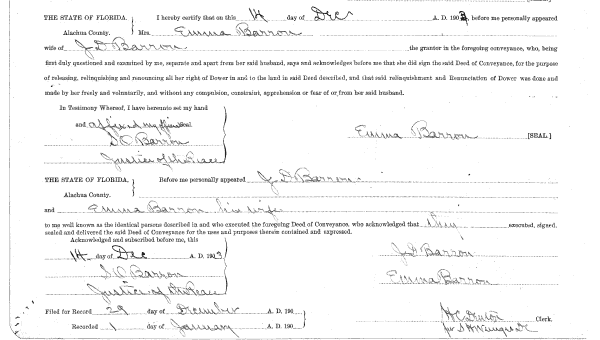 THE STATE OF FLORIDA. } I hereby certify that on this 14 day of Dec A. D. 190 before me personally appeared
Alachua County. } Mrs. Emma Barron
wife of J D Barron the grantor in the foregoing conveyance, who, being
first duly questioned and examined by me, separate and apart from her said husband, says and acknowledges before me that she did sign the said Deed of Conveyance, for the purpose
of releasing, relinquishing and renouncing all her right of Dower in and to the land in said Deed described, and that said relinquishment and Renunciation of Dower was done and
made by her freely and voluntarily, and without any compulsion, constraint, apprehension or fear of or from her said husband.
In Testimony Whereof, I have hereunto set my hand
and affixed my official
S O Barron
Justice of the Peace
Emma Barron [SEAL]
THE STATE OF FLORIDA. } Before me personally appeared J. D. Barron
Alachua County.
and Emma Barron his wife
to me well known as the identical persons described in and who executed the foregoing Deed of Conveyance, who acknowledged that they executed, signed,
sealed and delivered the said Deed of Conveyance for the uses and purposes therein contained and expressed.
Acknowledged and subscribed before me, this
14 day of Dec A. D. 1903
S O Barron
Justice of the Peace
J D Barron
Emma Barron
Filed for Record 29 day of December A. D. 190
Recorded 1 day of January A. D. 190
Clerk.